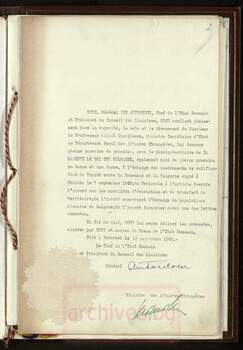 NOUS, Général ION ANTONESCU, Chef de l'Etat Roumain
et Président du Conseil des Ministres, NOUS confiant pleine-
ment dans la capacité, le zèle et le dévouement de Monsieur
le Professeur Secrétaire d'Etat
au Département Royal des Affaires Etrangères, lui donnons
pleins pouvoirs de procéder, avec le plénipotentiaire de SA
MAJESTE LE ROI DES BULGARES, également muni de pleins pouvoirs
en bonne et due forme, à l'échange des instruments de ratification
du Traité entre la Roumanie et la Bulgarie signé à
Craiova le 7 septembre 1940, du Protocole à l'article
à l'Accord sur les modalités d'évacuation et de transfert du
territoire, à l'Accord concernant l'échange de population
roumaine et bulgare, à l'Accord financier ainsi que des lettres
annexées.
En foi de quoi, NOUS lui avons délivré les présentes,
signées par NOUS et munies du Sceau de l'Etat Roumain.
Fait à Bucarest le 13 septembre 1940.
Le Chef de l'Etat Roumain
et Président du Conseil des Ministres
Général Antonescu
Ministre des Affaires Etrangères
archives.bg